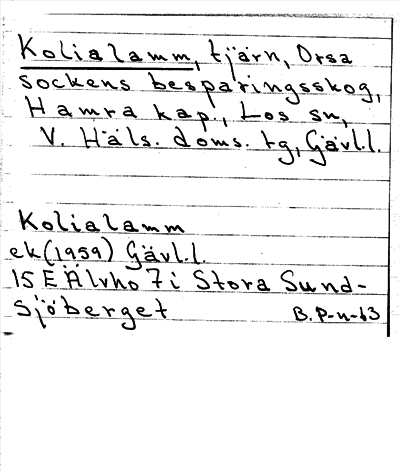 Kolialamm, tjärn, Orsa
sockens besparingsskog,
Hamra kap., Los sn,
V. Häls. doms. tg, Gävl.l.
Kolialamm
ek (1959) Gävl.l.
15 E Älvho 7 i Stora Sund-
sjöberget
B. P-n-63